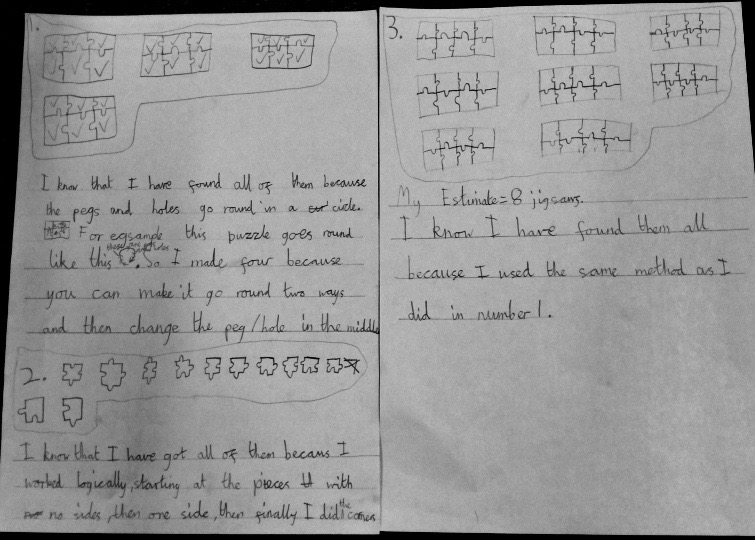 1.
I know that I have found all of them because
the pegs and holes go round in a circle.
For egsample this puzzle goes round
like this . So I made four because
you can make it go round two ways
and then change the peg/hole in the middle
2.
I know that I have got all of them becaus I
worked logically, starting at the pieces with
no sides, then one side, then finally I did the corners
3.
My Estimate = 8 jigsaws.
I know I have found them all
because I used the same method as I
did in number 1.